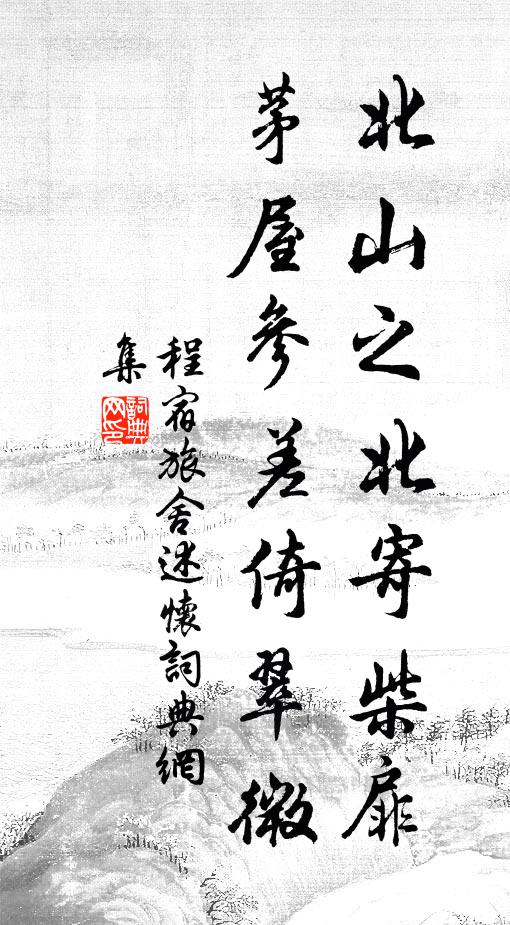 北山之北寄柴扉
茅屋參差倚翠微
程宿旅舍述懷詞典網
集
詞典
网印